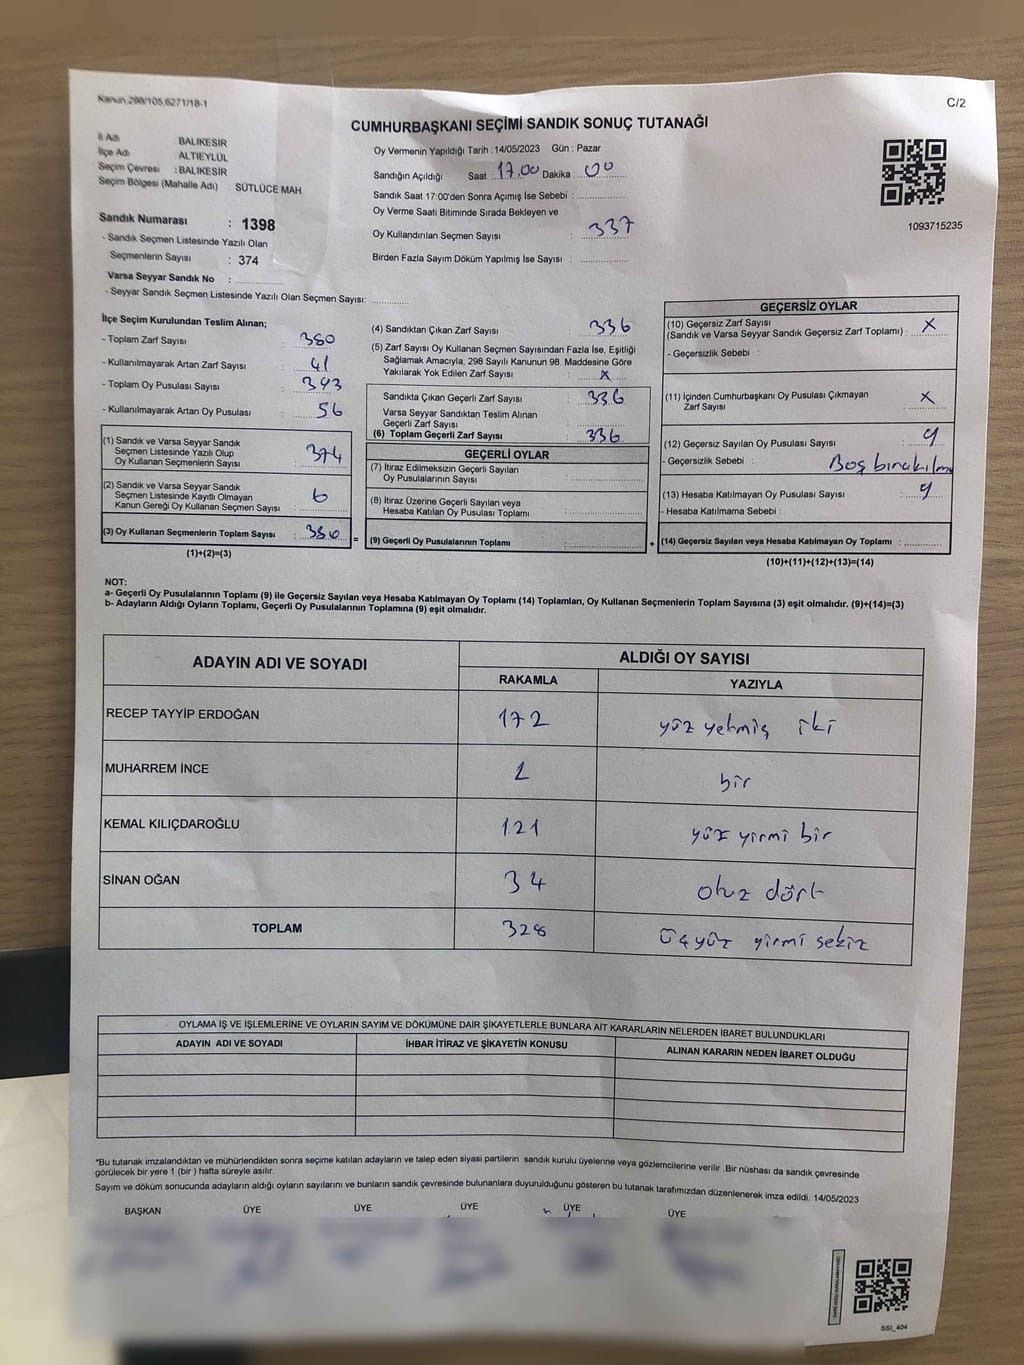 Kanun,298/105,6271/18-1
C/2
CUMHURBAŞKANI SEÇİMİ SANDIK SONUÇ TUTANAĞI
İl Adı BALIKESİR
İlçe Adı ALTIEYLÜL
Seçim Çevresi : BALIKESİR
Seçim Bölgesi (Mahalle Adı) : SÜTLÜCE MAH.
Sandık Numarası : 1398
- Sandık Seçmen Listesinde Yazılı Olan
Seçmenlerin Sayısı : 374
Varsa Seyyar Sandık No :
- Seyyar Sandık Seçmen Listesinde Yazılı Olan Seçmen Sayısı:
Oy Vermenin Yapıldığı Tarih :14/05/2023 Gün : Pazar
Sandığın Açıldığı Saat : 17.00 Dakika : 00
Sandık Saat 17:00'den Sonra Açımış İse Sebebi :
Oy Verme Saati Bitiminde Sırada Bekleyen ve
Oy Kullandırılan Seçmen Sayısı : 337
Birden Fazla Sayım Döküm Yapılmış İse Sayısı :
1093715235
İlçe Seçim Kurulundan Teslim Alınan;
- Toplam Zarf Sayısı : 380
- Kullanılmayarak Artan Zarf Sayısı : 41
- Toplam Oy Pusulası Sayısı : 393
- Kullanılmayarak Artan Oy Pusulası : 56
(1) Sandık ve Varsa Seyyar Sandık
Seçmen Listesinde Yazılı Olup
Oy Kullanan Seçmenlerin Sayısı : 374
(2) Sandık ve Varsa Seyyar Sandık
Seçmen Listesinde Kayıtlı Olmayan
Kanun Gereği Oy Kullanan Seçmen Sayısı : 6
(3) Oy Kullanan Seçmenlerin Toplam Sayısı : 380
(1)+(2)=(3)
=
(4) Sandıktan Çıkan Zarf Sayısı : 336
(5) Zarf Sayısı Oy Kullanan Seçmen Sayısından Fazla İse, Eşitliği
Sağlamak Amacıyla, 298 Sayılı Kanunun 98. Maddesine Göre
Yakılarak Yok Edilen Zarf Sayısı : X
Sandıkta Çıkan Geçerli Zarf Sayısı : 336
Varsa Seyyar Sandıktan Teslim Alınan
Geçerli Zarf Sayısı :
(6) Toplam Geçerli Zarf Sayısı : 336
GEÇERLİ OYLAR
(7) İtiraz Edilmeksizin Geçerli Sayılan
Oy Pusulalarının Sayısı :
(8) İtiraz Üzerine Geçerli Sayılan veya
Hesaba Katılan Oy Pusulası Toplamı :
(9) Geçerli Oy Pusulalarının Toplamı :
+
GEÇERSİZ OYLAR
(10) Geçersiz Zarf Sayısı
(Sandık ve Varsa Seyyar Sandık Geçersiz Zarf Toplamı) : X
- Geçersizlik Sebebi :
(11) İçinden Cumhurbaşkanı Oy Pusulası Çıkmayan
Zarf Sayısı : X
(12) Geçersiz Sayılan Oy Pusulası Sayısı : 9
- Geçersizlik Sebebi : Boş bırakılm
(13) Hesaba Katılmayan Oy Pusulası Sayısı : 9
- Hesaba Katılmama Sebebi :
(14) Geçersiz Sayılan veya Hesaba Katılmayan Oy Toplamı :
(10)+(11)+(12)+(13)=(14)
NOT:
a- Geçerli Oy Pusulalarının Toplamı (9) ile Geçersiz Sayılan veya Hesaba Katılmayan Oy Toplamı (14) Toplamları, Oy Kullanan Seçmenlerin Toplam Sayısına (3) eşit olmalıdır. (9)+(14)=(3)
b- Adayların Aldığı Oyların Toplamı, Geçerli Oy Pusulalarının Toplamına (9) eşit olmalıdır.
ADAYIN ADI VE SOYADI
ALDIĞI OY SAYISI
RAKAMLA YAZIYLA
RECEP TAYYİP ERDOĞAN 172 yüz yetmiş iki
MUHARREM İNCE 1 bir
KEMAL KILIÇDAROĞLU 121 yüz yirmi bir
SİNAN OĞAN 34 otuz dört
TOPLAM 328 üçyüz yirmi sekiz
OYLAMA İŞ VE İŞLEMLERİNE VE OYLARIN SAYIM VE DÖKÜMÜNE DAİR ŞİKAYETLERLE BUNLARA AİT KARARLARIN NELERDEN İBARET BULUNDUKLARI
ADAYIN ADI VE SOYADI İHBAR İTİRAZ VE ŞİKAYETİN KONUSU ALINAN KARARIN NEDEN İBARET OLDUĞU
*Bu tutanak imzalandıktan ve mühürlendikten sonra seçime katılan adayların ve talep eden siyasi partilerin sandık kurulu üyelerine veya gözlemcilerine verilir .Bir nüshası da sandık çevresinde
görülecek bir yere 1 (bir ) hafta süreyle asılır.
Sayım ve döküm sonucunda adayların aldığı oyların sayılarını ve bunların sandık çevresinde bulunanlara duyurulduğunu gösteren bu tutanak tarafımızdan düzenlenerek imza edildi. 14/05/2023
BAŞKAN ÜYE ÜYE ÜYE ÜYE ÜYE
SSI_404